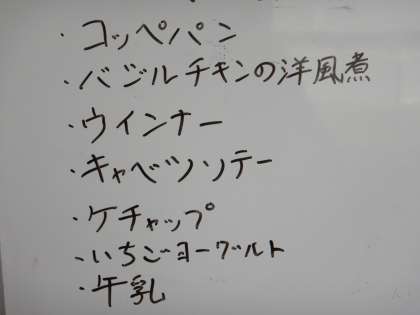 ・コッペパン
・バジルチキンの洋風煮
・ウインナー
・キャベツソテー
・ケチャップ
・いちごヨーグルト
・牛乳